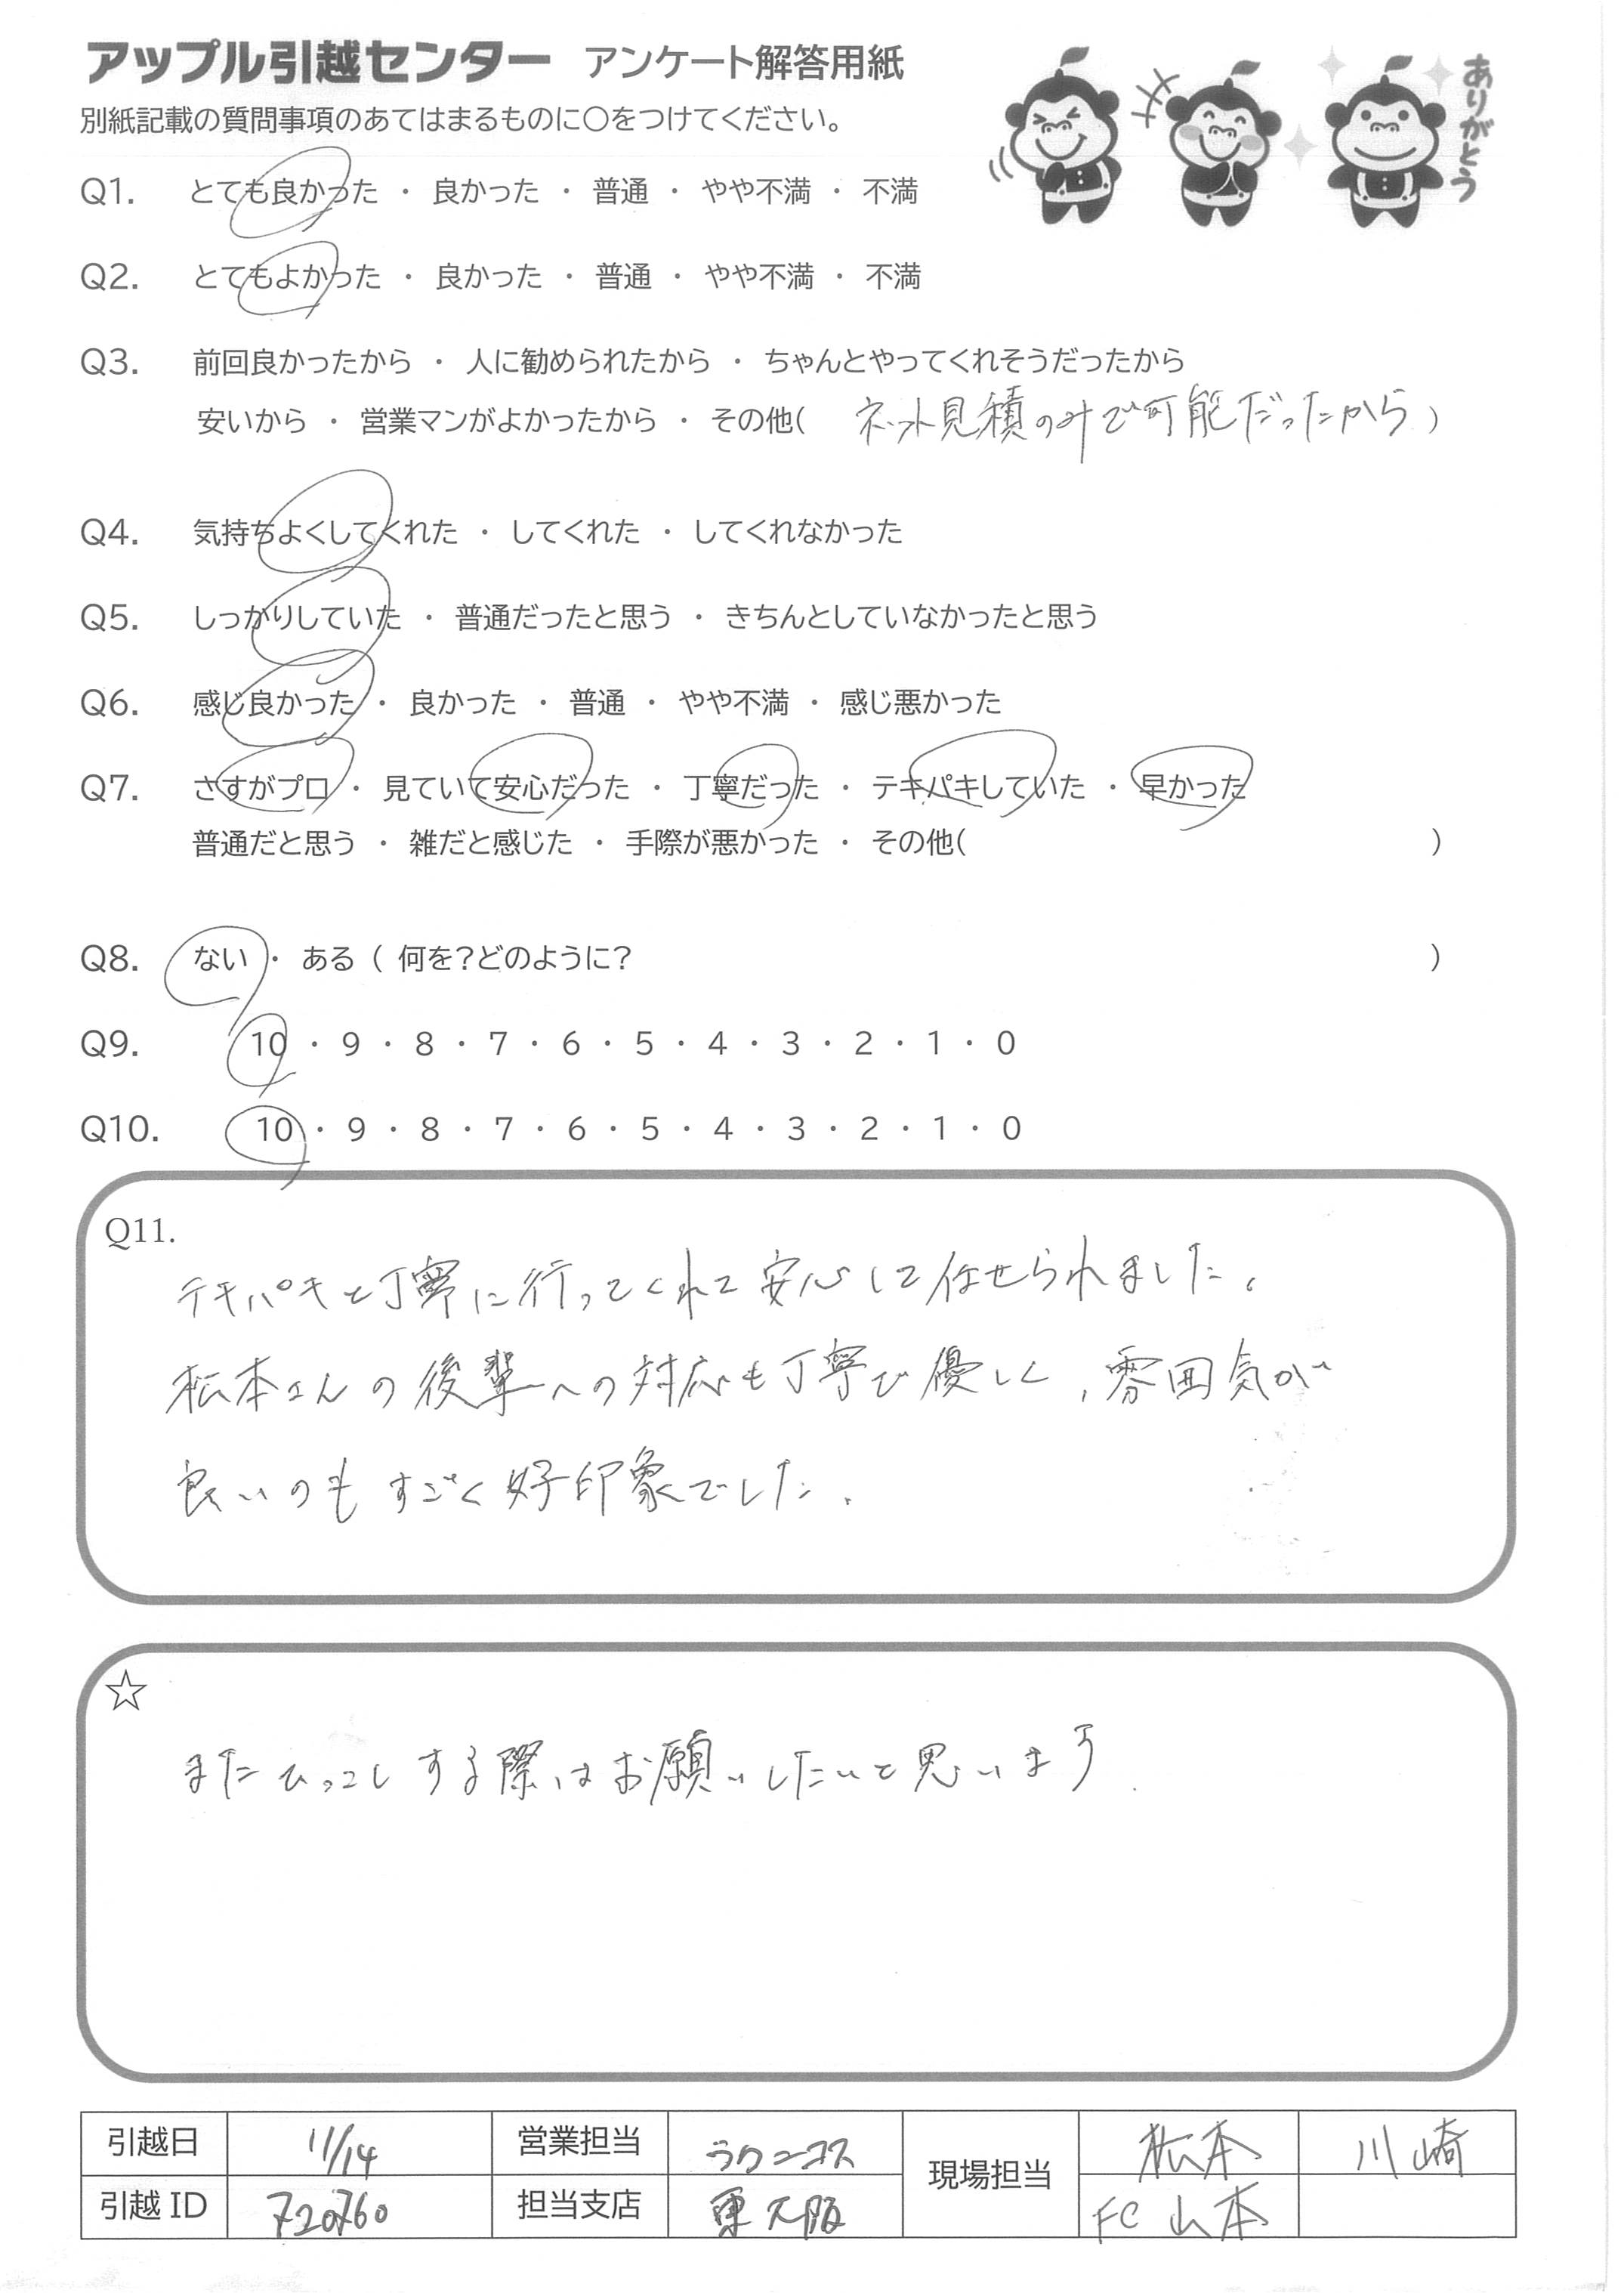 アップル引越センター アンケート解答用紙
ありがとう
別紙記載の質問事項のあてはまるものに〇をつけてください。
Q1. とても良かった ・ 良かった ・ 普通 ・ やや不満 ・ 不満
Q2. とてもよかった ・ 良かった ・ 普通 ・ やや不満 ・ 不満
Q3. 前回良かったから ・ 人に勧められたから ・ ちゃんとやってくれそうだったから
安いから ・ 営業マンがよかったから ・ その他( ネット見積のみで可能だったから )
Q4. 気持ちよくしてくれた ・ してくれた ・ してくれなかった
Q5. しっかりしていた ・ 普通だったと思う ・ きちんとしていなかったと思う
Q6. 感じ良かった ・ 良かった ・ 普通 ・ やや不満 ・ 感じ悪かった
Q7. さすがプロ ・ 見ていて安心だった ・ 丁寧だった ・ テキパキしていた ・ 早かった
普通だと思う ・ 雑だと感じた ・ 手際が悪かった ・ その他( )
Q8. ない ・ ある ( 何を?どのように? )
Q9. 10 ・ 9 ・ 8 ・ 7 ・ 6 ・ 5 ・ 4 ・ 3 ・ 2 ・ 1 ・ 0
Q10. 10 ・ 9 ・ 8 ・ 7 ・ 6 ・ 5 ・ 4 ・ 3 ・ 2 ・ 1 ・ 0
Q11.
テキパキと丁寧に行ってくれて安心して任せられました。
松本さんの後輩への対応も丁寧で優しく、雰囲気が
良いのもすごく好印象でした。
☆
またひっこしする際はお願いしたいと思います.
引越日 11/14 営業担当 ラクニコス 現場担当 松本 川崎
引越ID 720760 担当支店 東大阪 FC 山本